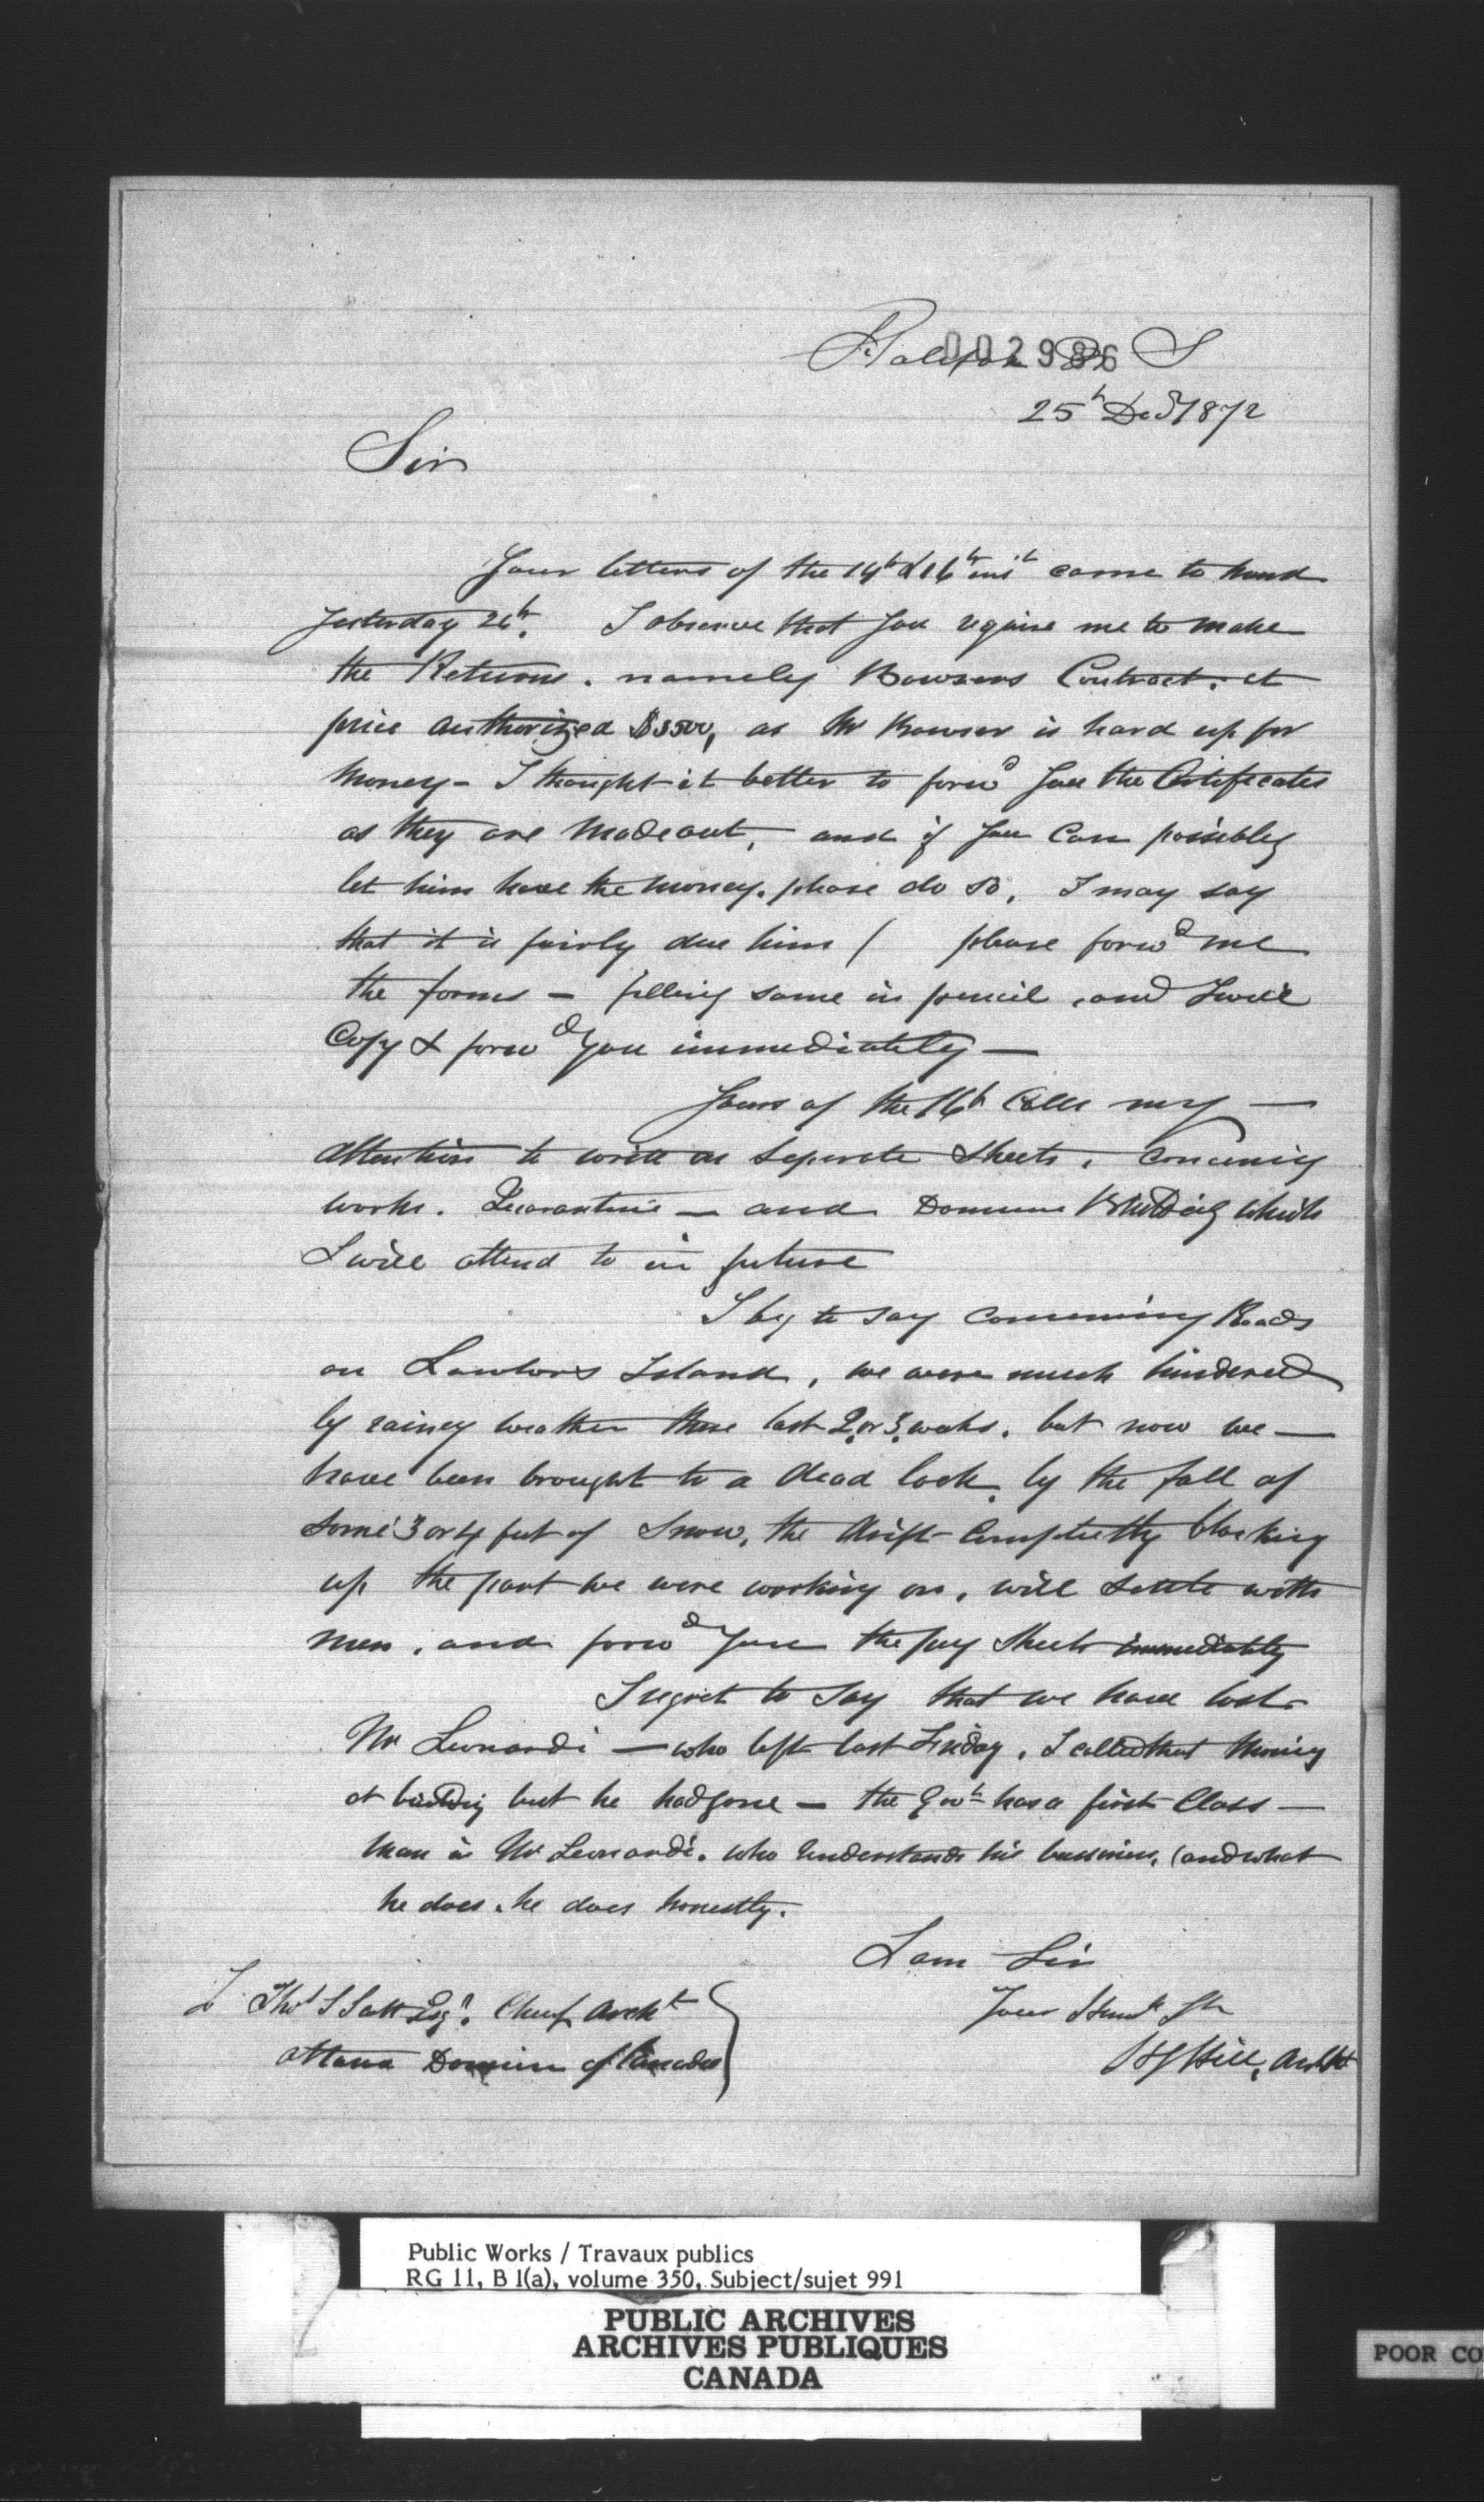 Halifax N S
002986
25th Dec 1872
Sir
Your letters of the 14th & 16th inst came to hand
yesterday 26th. I observe that you require me to make
the Returns. namely Bowsers Contract. at
price authorized $3500, as Mr Bowser is hard up for
money - I thought it better to forwd you the Certificates
as they are made out, and if you can possibly
let him have the money. please do so, I may say
that it is fairly due him / please forwd me
the forms - filling same in pencil, and I will
Copy & forwd you immediately -
Yours of the 16th calls my -
attention to write on separate sheets, concerning
works. Quarantine - and Building which
I will attend to in future
I beg to say concerning Roads
on Lawlors Island, we were much hindered
by rainey weather these last 2 or 3 weeks. but now we -
have been brought to a dead lock, by the fall of
some 3 or 4 feet of Snow, the drift completely blocking
up the part we were working on, will settle with
men, and forwd you the pay sheets immediately
I regret to say that we have lost
Mr Leonardi - who left last Friday, I called that morning
at building but he had gone - the Govt has a first Class -
man in Mr Leonardi. who understands his bussiness, (and what
he does, he does honestly.
I am Sir
Your Humb St
H Hill, Archt
To Thos S Scott Esqr. Chief Archt
Ottawa Dominion of Canada
Public Works / Travaux publics
RG 11, B 1(a), volume 350, Subject/sujet 991
PUBLIC ARCHIVES
ARCHIVES PUBLIQUES
CANADA
POOR CO